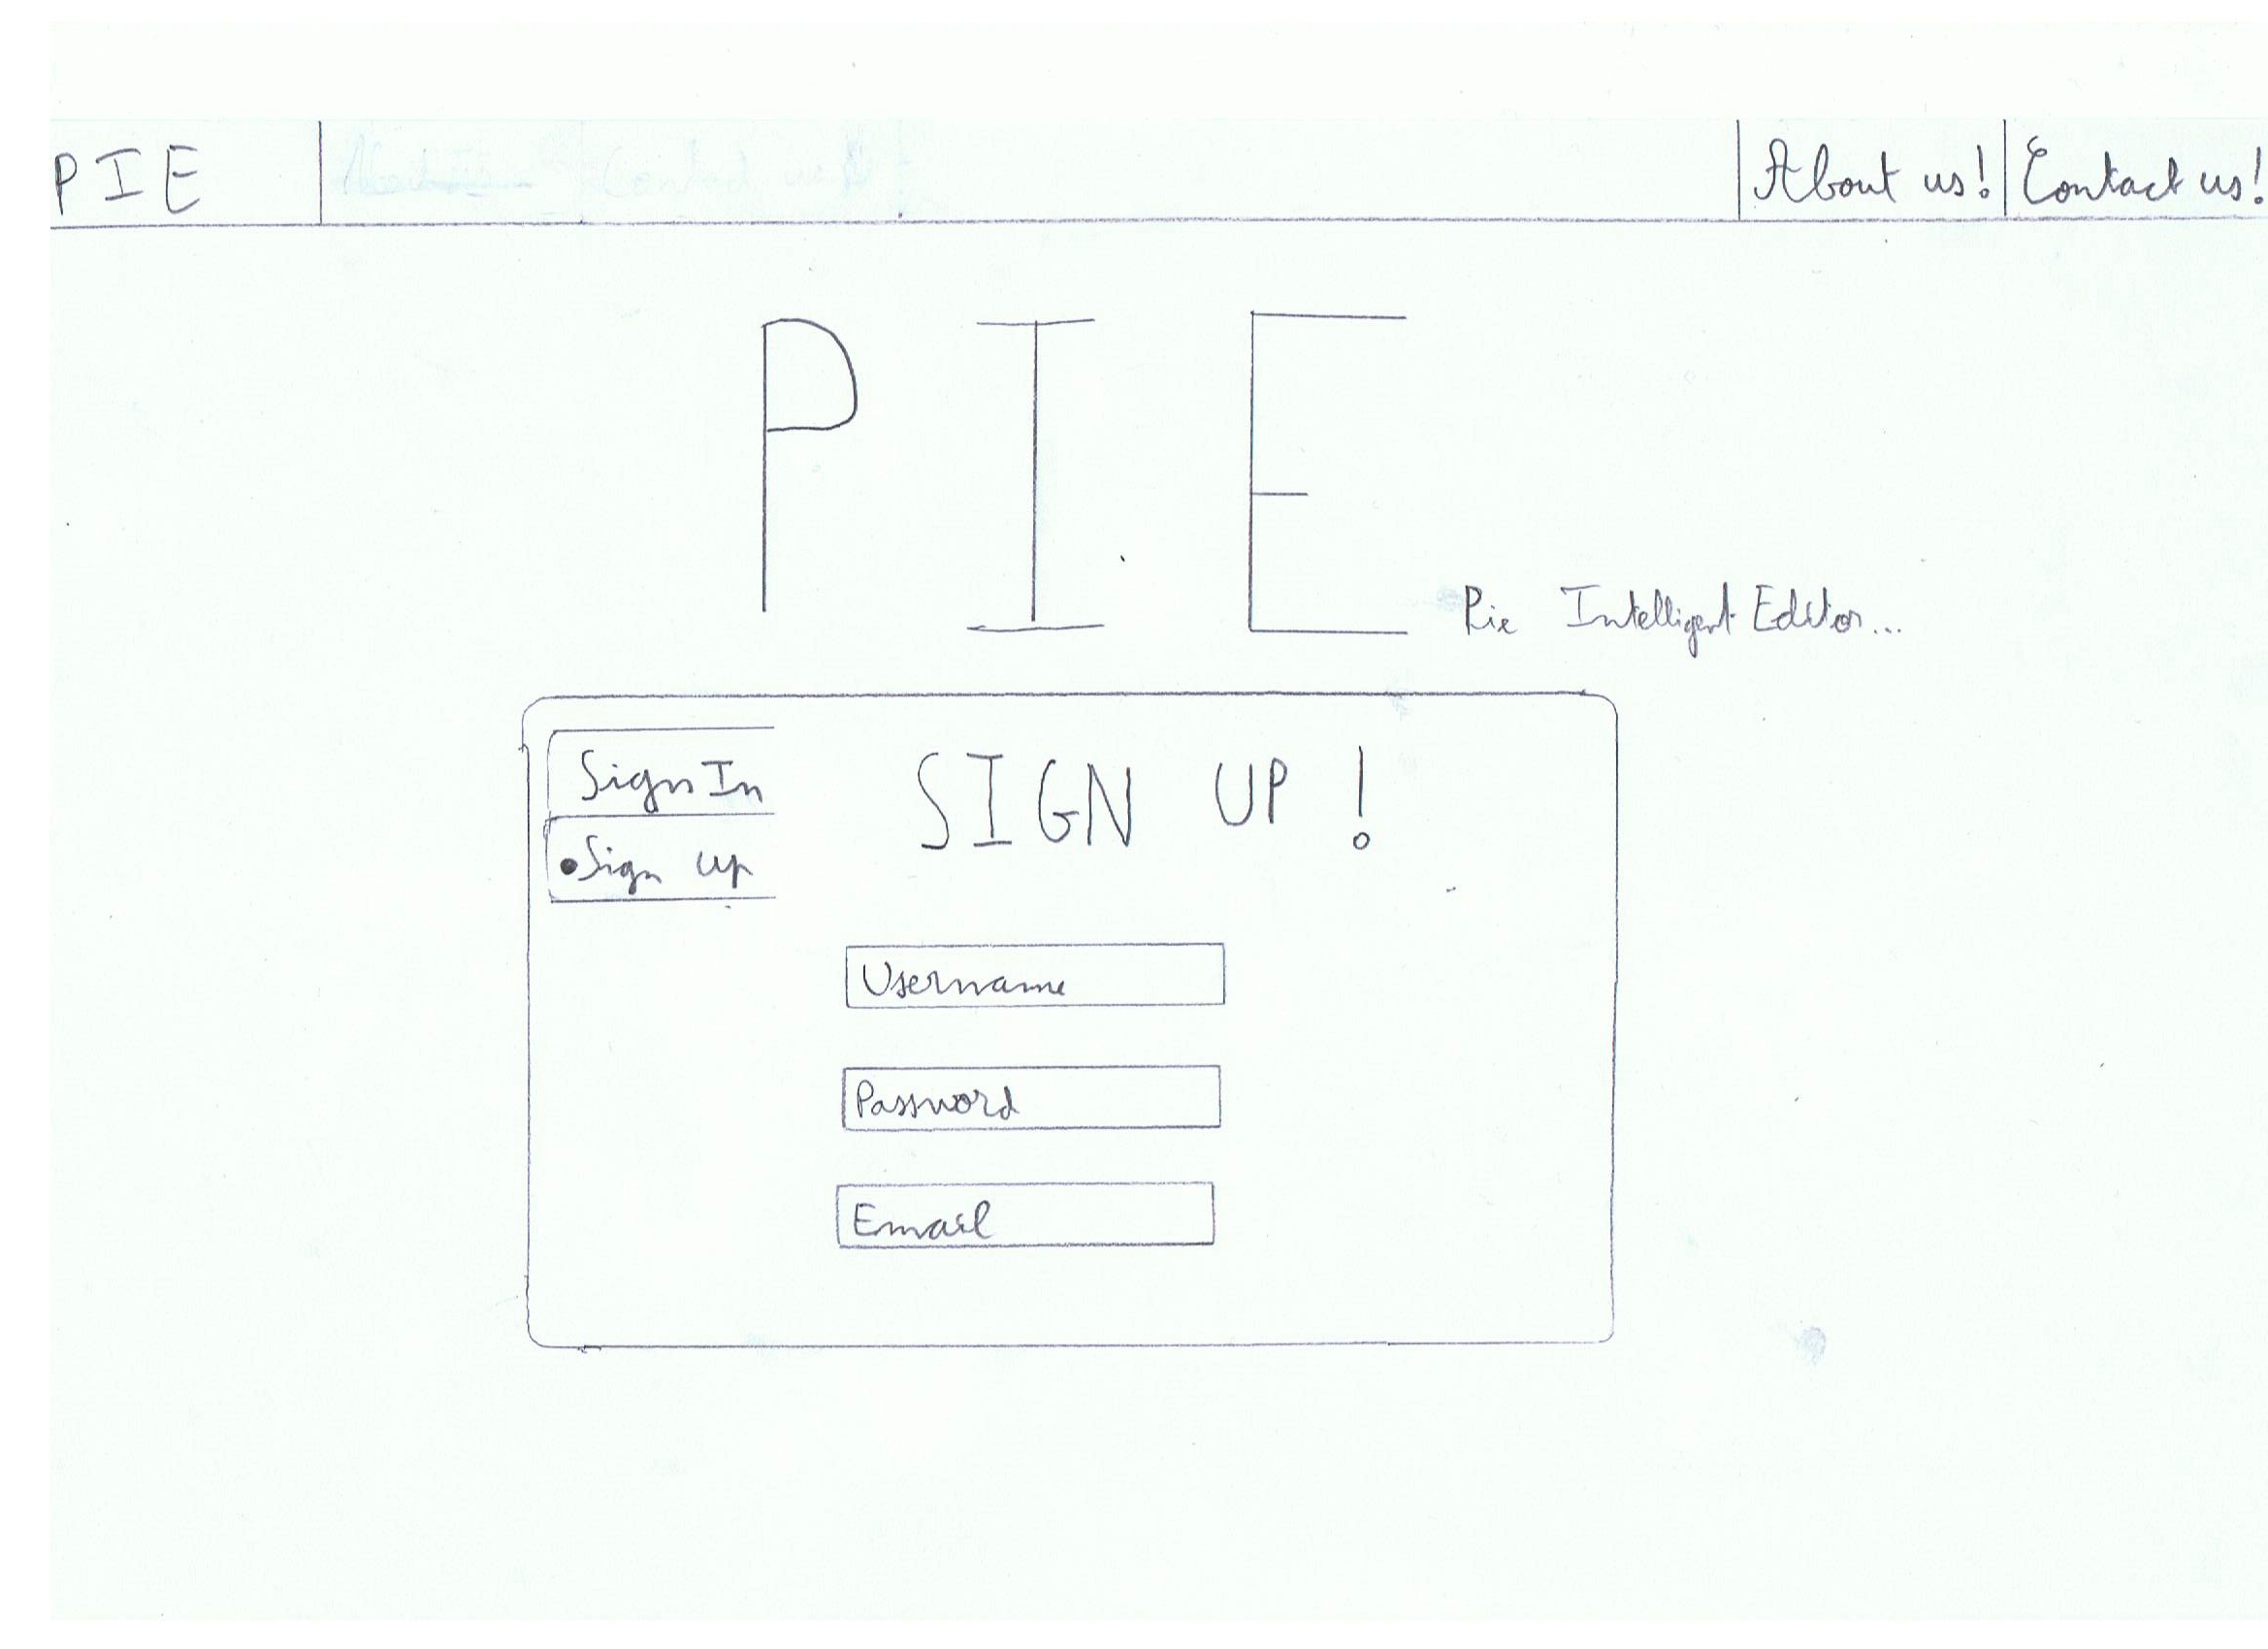 PIE
About us!
Contact us!
PIE
Pie Intelligent Editor...
Sign In
SIGN UP!
•Sign up
Username
Password
Email